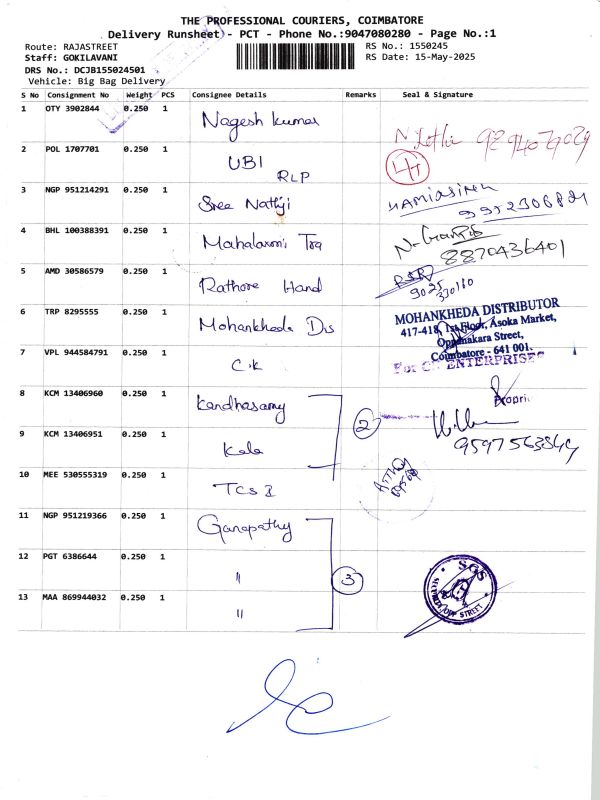 THE PROFESSIONAL COURIERS, COIMBATORE
Delivery Runsheet - PCT - Phone No.:9047080280 - Page No.:1
Route: RAJASTREET
RS No.: 1550245
Staff: GOKILAVANI
RS Date: 15-May-2025
DRS No.: DCJB155024501
Vehicle: Big Bag Delivery
S No Consignment No Weight PCS Consignee Details Remarks Seal & Signature
1 OTY 3902844 0.250 1 Nagesh Kumar
2 POL 1707701 0.250 1 UBI RLP
3 NGP 951214291 0.250 1 Sree Nathji
4 BHL 100388391 0.250 1 Mahalaxmi Tra
8870436401
5 AMD 30586579 0.250 1 Rathore Hand
9025 330180
6 TRP 8295555 0.250 1 Mohankheda Dis
MOHANKHEDA DISTRIBUTOR
417-418, 1st Floor, Asoka Market,
Oppanakara Street,
Coimbatore - 641 001.
7 VPL 944584791 0.250 1 C.K
For CK ENTERPRISES
Propri
8 KCM 13406960 0.250 1 Kandhasamy
2
9 KCM 13406951 0.250 1 Kala
9597563844
10 MEE 530555319 0.250 1 TCS I
11 NGP 951219366 0.250 1 Ganapathy
12 PGT 6386644 0.250 1 "
3
SGS
13 MAA 869944032 0.250 1 "